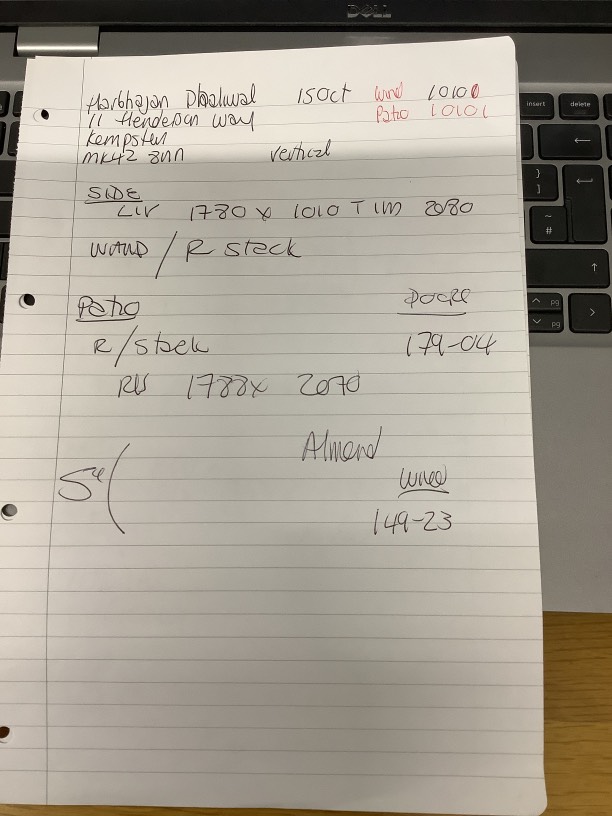 DELL
insert
delete
Harbhajan Dhaliwal 15 Oct Wind 10100
11 Henderson Way Patio 10101
Kempston
MK42 8NN vertical
SIDE
LIV 1780 x 1010 TIM 2080
WAND / R Stack
Patio
R/Stack 179-04
RV 1788 x 2070
Almond
5"
149-23